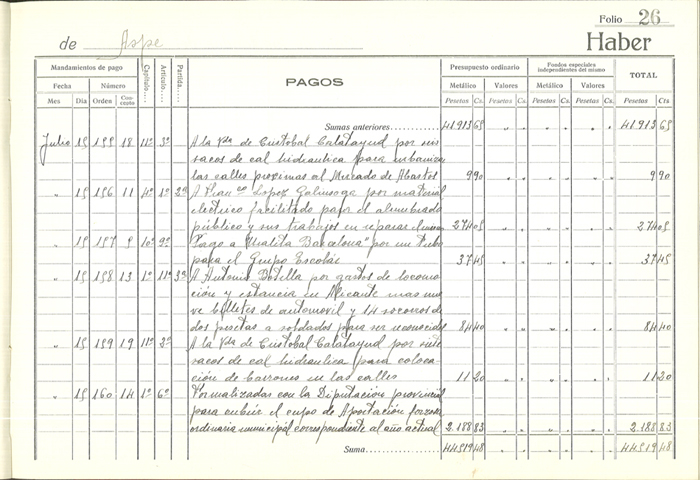 Folio 26
de Aspe
Haber
Mandamientos de pago
Fecha Número
Mes Día Orden Concepto
Capítulo.... Artículo.... Partida....
PAGOS
Presupuesto ordinario
Metálico Valores
Pesetas Cs. Pesetas Cs.
Fondos especiales independientes del mismo
Metálico Valores
Pesetas Cs. Pesetas Cs.
TOTAL
Pesetas Cts
Sumas anteriores 41.913 65 " " " " " " 41.913 65
Julio 15 155 18 11º 3º A la Vda de Cristobal Calatayud por seis
sacos de cal hidraulica para urbanizar
las calles proximas al Mercado de Abastos 9 90 " " " " " " 9 90
" 15 156 11 4º 1º 2ª A Franco Lopez Galinsoga por material
electrico facilitado para el alumbrado
público y sus trabajos en reparar el mismo 274 05 " " " " " " 274 05
" 15 157 9 10º 9º Pago a "Uralita Barcelona" por un Tubo
para el Grupo Escolar 37 45 " " " " " " 37 45
" 15 158 13 1º 11º 3ª A Antonio Botella por gastos de locomo-
ción y estancia en Alicante mas nue-
ve billetes de automovil y 14 socorros de
dos pesetas a soldados para ser reconocidos 84 40 " " " " " " 84 40
" 15 159 19 11º 2º A la Vda de Cristobal Calatayud por siete
sacos de cal hidraulica para coloca-
ción de en las calles 11 20 " " " " " " 11 20
" 15 160 14 1º 6º Formalizadas con la Diputacion provincial
para cubrir el cupo de Aportación forzosa
ordinaria municipal correspondiente al año actual 2.188 83 " " " " " " 2.188 83
Suma 44.519 48 " " " " " " 44.519 48